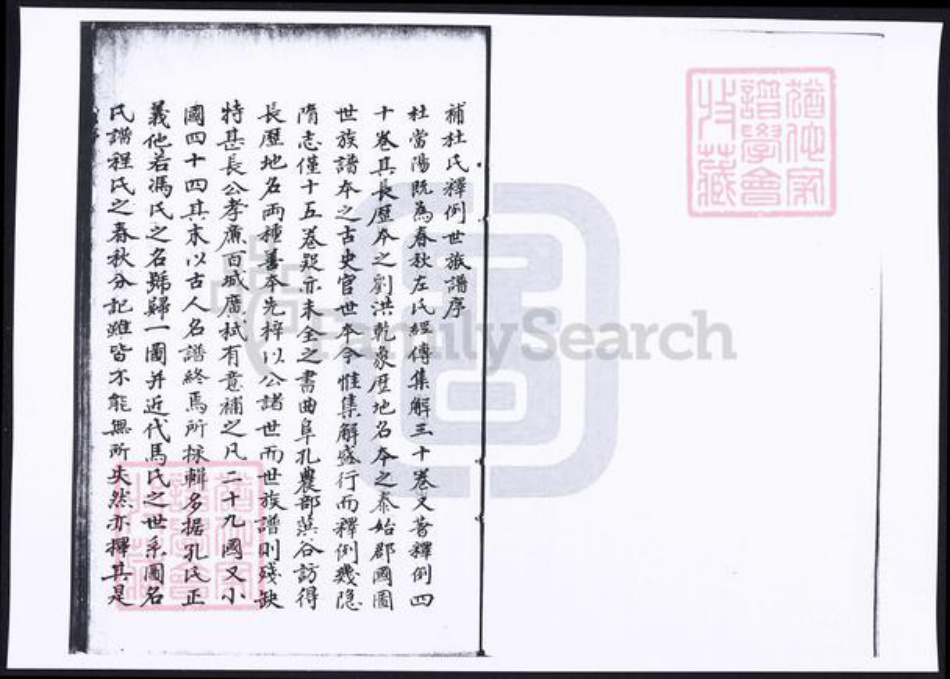 補杜氏釋例世族譜序
杜當陽既為春秋左氏經傳集解三十卷又著釋例四
十卷其長歷本之劉洪乾象歷地名本之泰始郡國圖
世族譜本之古史官世本今惟集解盛行而釋例幾隱
隋志僅十五卷疑亦未全之書曲阜孔農部葒谷訪得
長歷地名兩種善本先梓以公諸世而世族譜則殘缺
特甚長公孝廉百城廣栻有意補之凡二十九國又小
國四十四其末以古人名譜終焉所採輯多據孔氏正
義他若馮氏之名號歸一圖并近代馬氏之世系圖名
氏譜程氏之春秋分記雖皆不能無所失然亦擇其是
猶他家
譜學會
收藏
猶他家
譜學會
收藏
FamilySearch